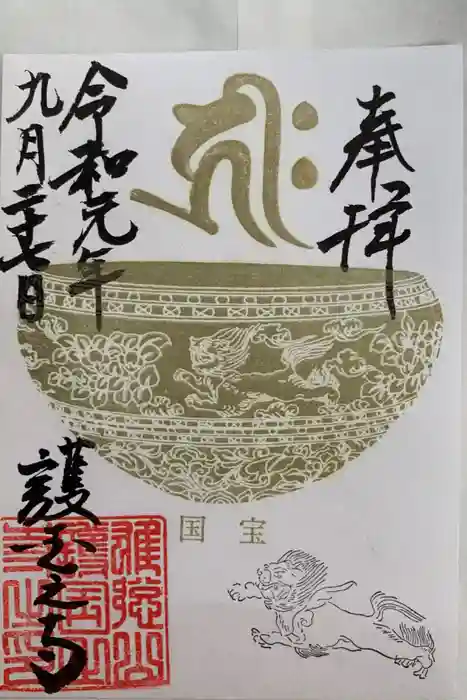 奉拝
令和元年
九月二十七日
国宝
護国之寺
雄総山